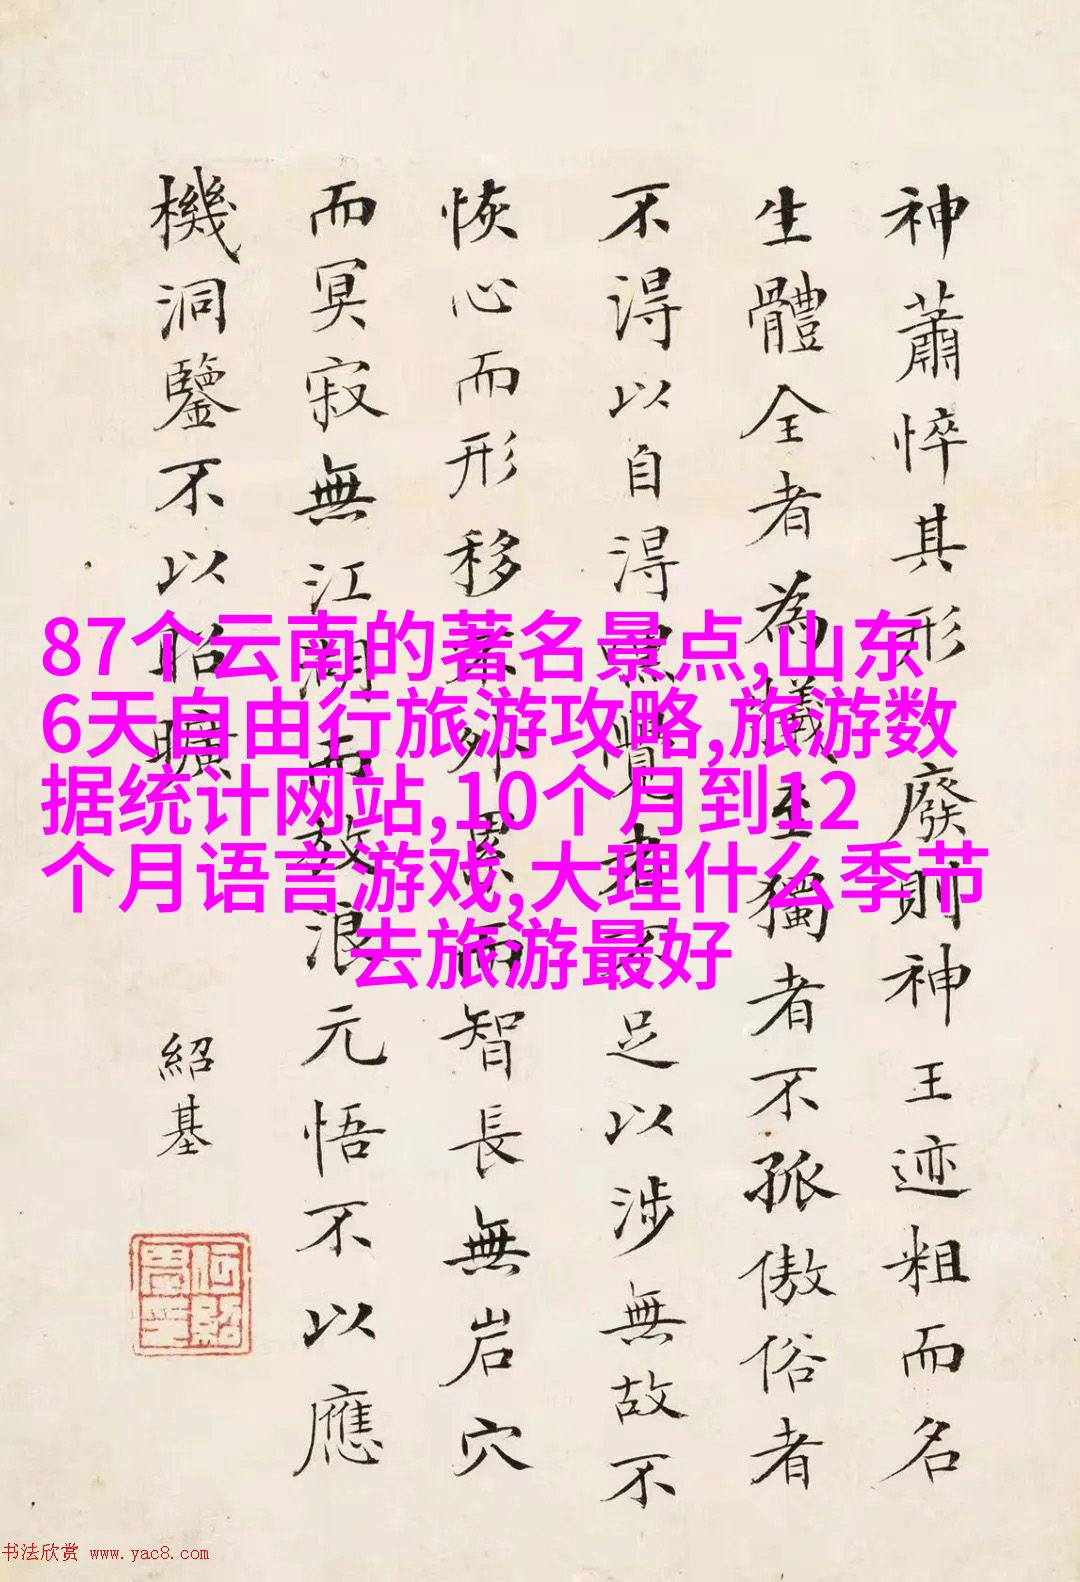 神蕭悴其形廢則神王迹粗而名
生體全者為犧至獨者不孤傲俗者
不得以自得者不足以涉無故不
恢心而形移外累而智長無岩穴
而冥寂無江湖而放浪元悟不以應
機洞鑒不以昭曠
紹基
何紹基印
87个云南的著名景点,山东
6天自由行旅游攻略,旅游数
据统计网站,10个月到12
个月语言游戏,大理什么季节
去旅游最好
书法欣赏 www.yac8.com